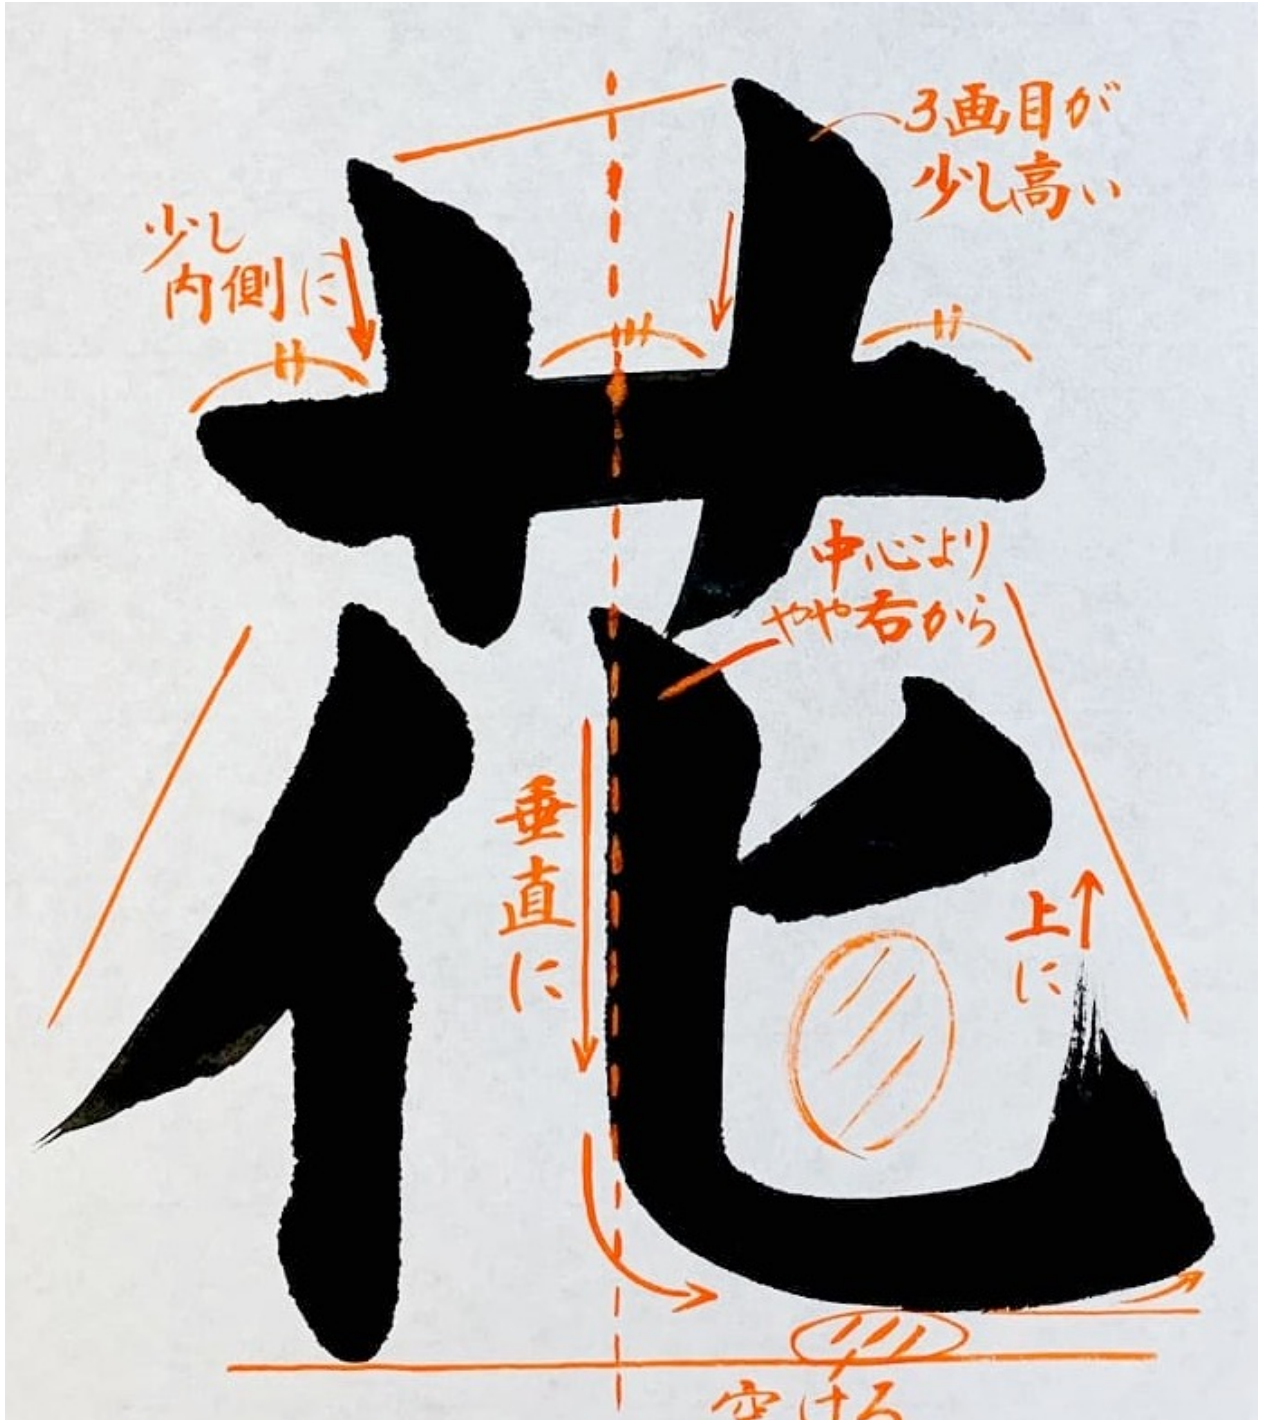 花
3画目が
少し高い
少し
内側に
中心より
やや右から
垂直に
上に
空ける